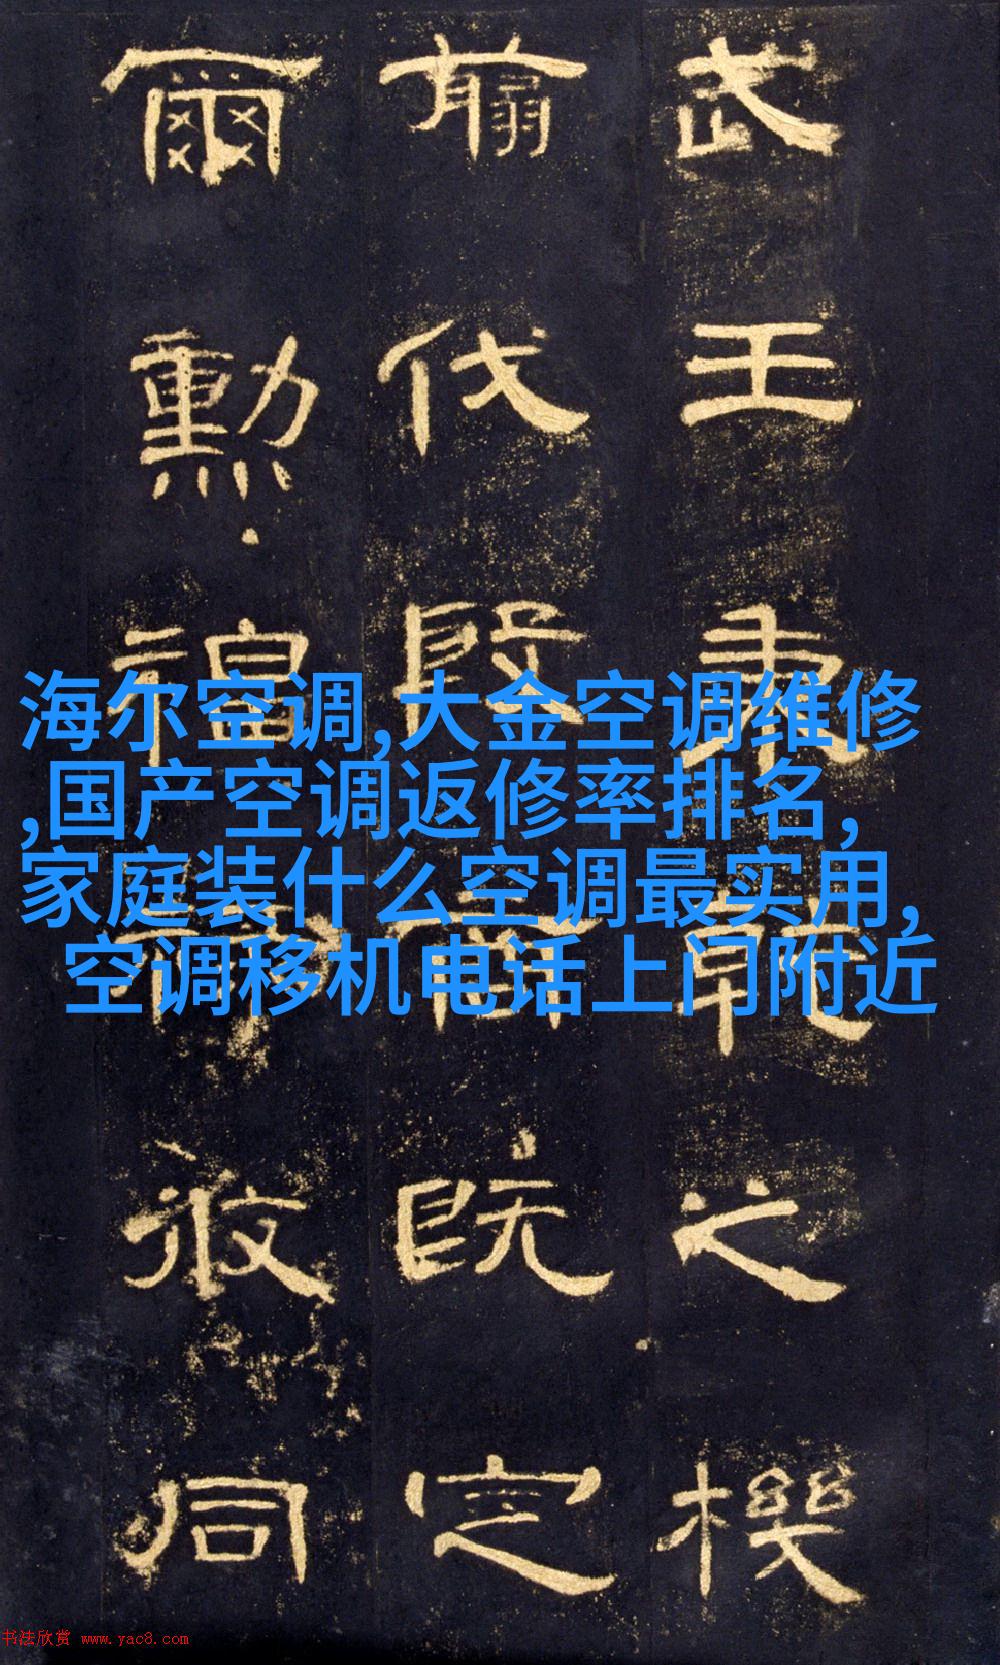 武王秉乾之機
翦伐殷商既定
爾勳福祿攸同
海尔空调,大金空调维修
,国产空调返修率排名,
家庭装什么空调最实用,
空调移机电话上门附近
书法欣赏 www.yac8.com